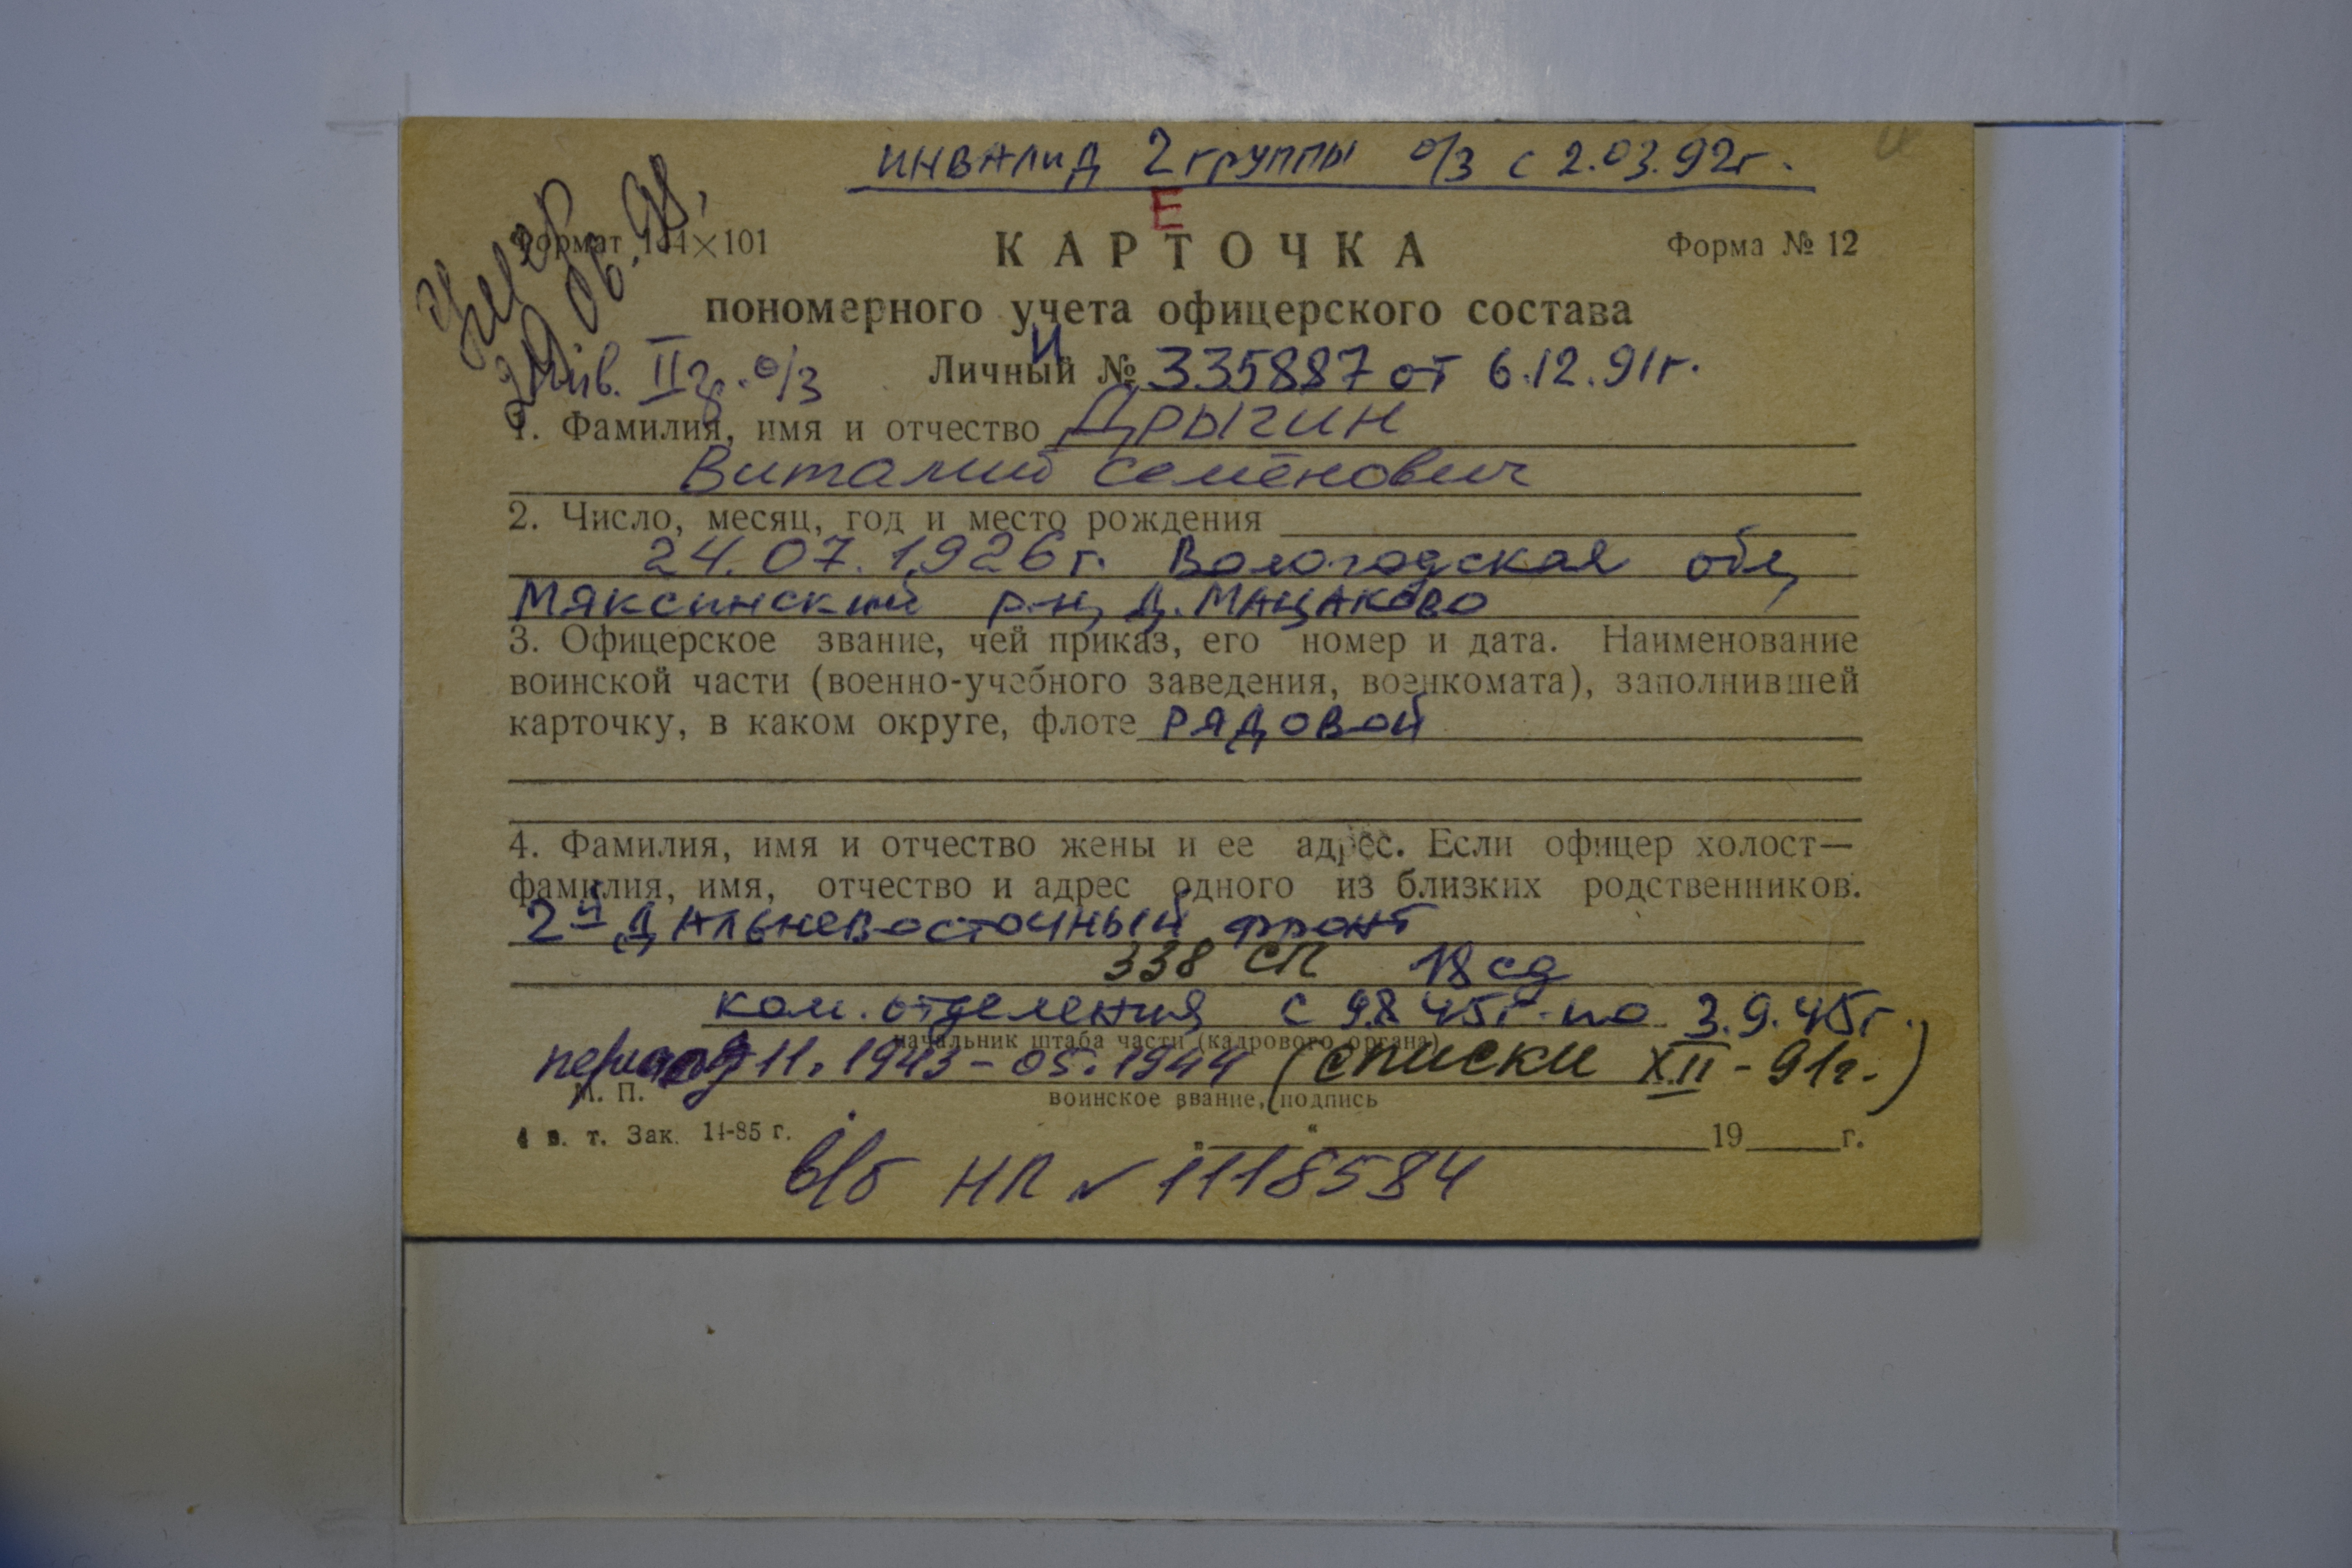 инвалид 2 группы о/з с 2.03.92г.
Умер
29.06.98.
Е
Формат 144×101
КАРТОЧКА
Форма № 12
пономерного учета офицерского состава
Инв. II гр. о/з
И
Личный № 335887 от 6.12.91г.
1. Фамилия, имя и отчество Дрыгин
Виталий Семёнович
2. Число, месяц, год и место рождения
24.07.1926г. Вологодская обл,
Мяксинский р-н, д. Мацаково
3. Офицерское звание, чей приказ, его номер и дата. Наименование
воинской части (военно-учебного заведения, военкомата), заполнившей
карточку, в каком округе, флоте рядовой
4. Фамилия, имя и отчество жены и ее адрес. Если офицер холост—
фамилия, имя, отчество и адрес одного из близких родственников.
2й Дальневосточный фронт
338 СП 18 сд
ком. отделения с 9.8.45г. по 3.9.45г.
начальник штаба части (кадрового органа)
период 11.1943-05.1944 (списки XII-91г.)
М. П.
воинское звание, подпись
4 в. т. Зак. 14-85 г.
„ “ 19 г.
в/б НП № 1118584